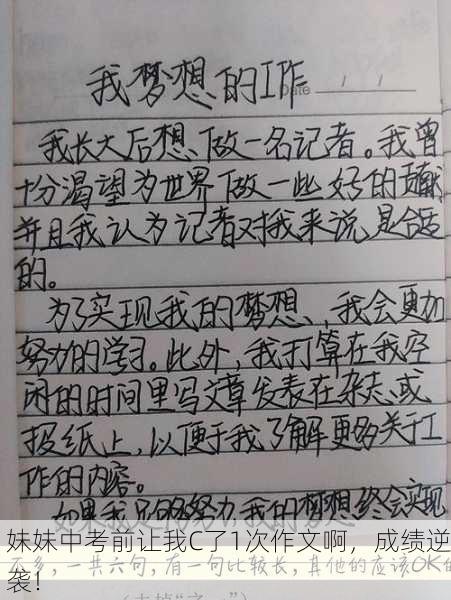 我梦想的工作
Date
我长大后想做一名记者。我曾
十分渴望为世界做一些好的贡献
并且我认为记者对我来说是合适
的。
为了实现我的梦想,我会更加
努力的学习。此外,我打算在我空
闲的时间里写文章发表在杂志或
报纸上,以便于我了解更多关于工
作的内容。
如果我足够努力,我的梦想终会实现
妹妹中考前让我C了1次作文啊，成绩逆
袭！
不多，一共六句，有一句比较长，其他的应该OK的